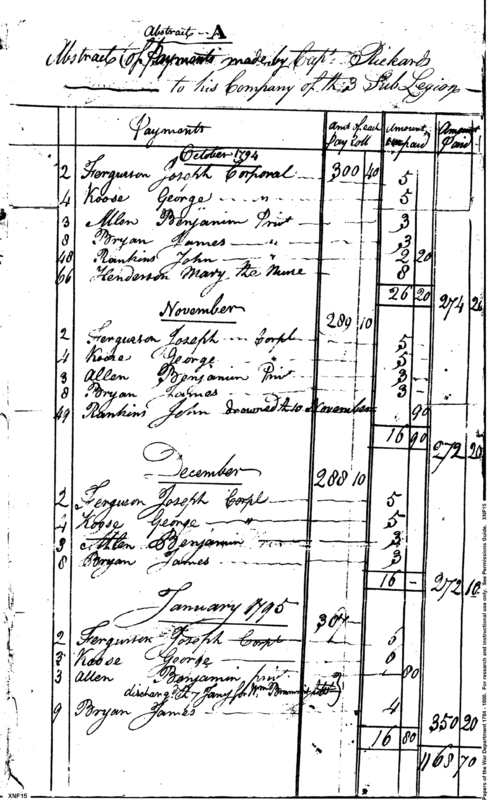 Abstract A
Abstract of Payments made by Capt. Rickard
to his Company of th 3 Sub Legion
Payments Amt of each Pay Roll Amount unpaid Amount Paid
October 1794
2 Ferguson Joseph Corporal 300 40 5
4 Koose George " " 5
3 Allen Benjamin Privt 3
8 Bryan James " 3
48 Rankins John " 2 20
66 Henderson Mary the Nurse 8
26 20 274 20
November 289 10
2 Ferguson Joseph Corpl 5
4 Koose George " 5
3 Allen Benjamin Privt 3
8 Bryan James 3
49 Rankins John drowned th 10 November 90
16 90 272 20
December 288 10
2 Ferguson Joseph Corpl 5
4 Koose George " 5
3 Allen Benjamin 3
8 Bryan James 3
16 - 272 10
January 1795 367
2 Ferguson Joseph Corpl 6
3 Koose George 6
3 Allen Benjamin privt 80
discharg'd th 7 Jany for Wm
9 Bryan James 4
16 80 350 20
1168 70
XNF15
Papers of the War Department 1784 - 1800. For research and instructional use only. See Permissions Guide. XNF15